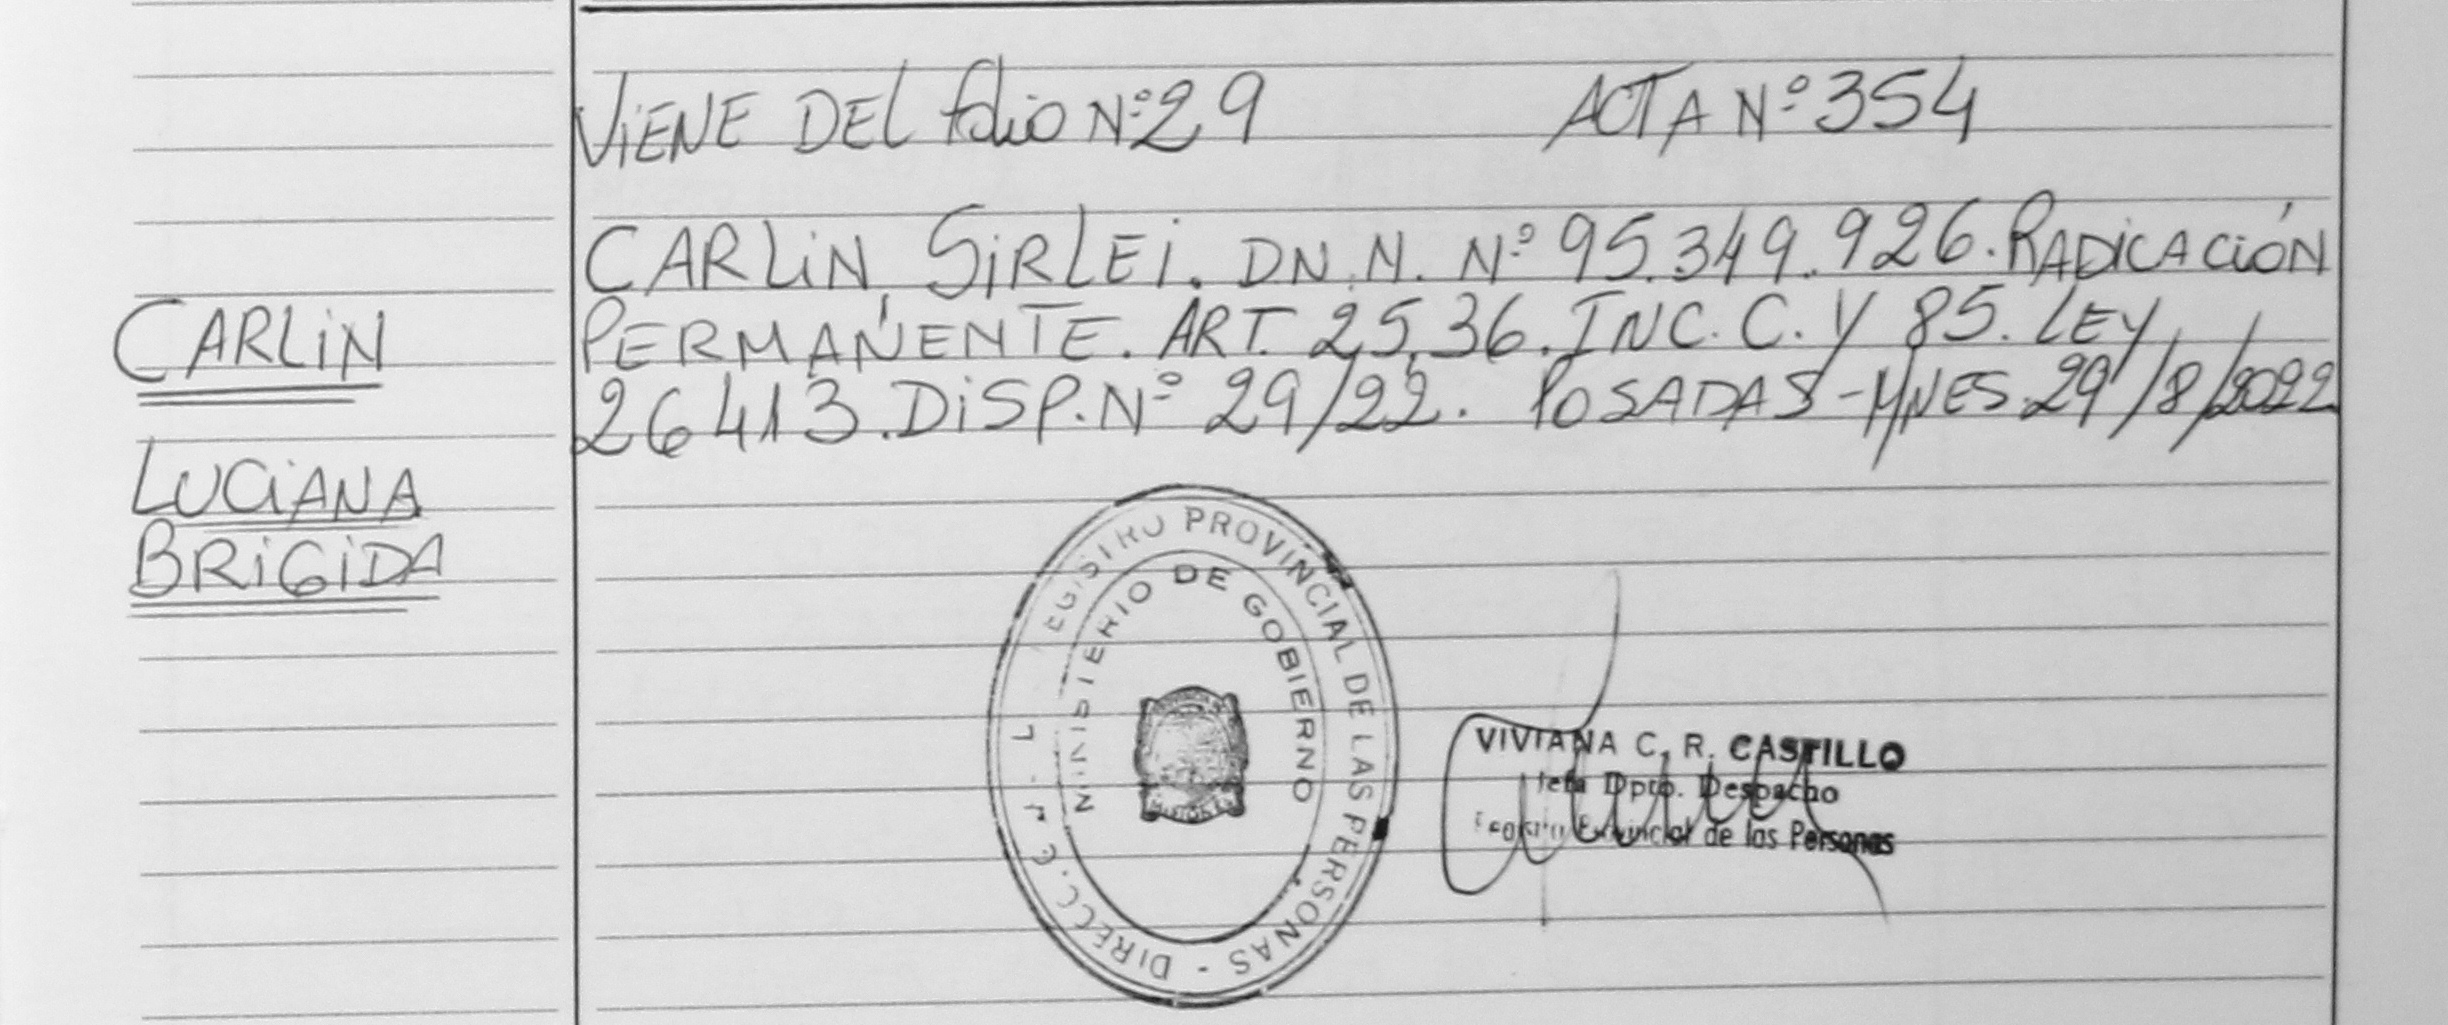 VIENE DEL folio Nº 29 ACTA Nº 354
CARLIN SIRLEI. DN.N. Nº 95.349.926. RADICACIÓN
PERMANENTE. ART. 25, 36. INC. C. Y 85. LEY
26413. DISP. Nº 29/22. POSADAS - MNES. 29/8/2022
CARLIN
LUCIANA
BRIGIDA
REGISTRO PROVINCIAL DE LAS PERSONAS - DIRECC.
MINISTERIO DE GOBIERNO
MISIONES
VIVIANA C. R. CASTILLO
Jefa Dpto. Despacho
Registro Provincial de las Personas